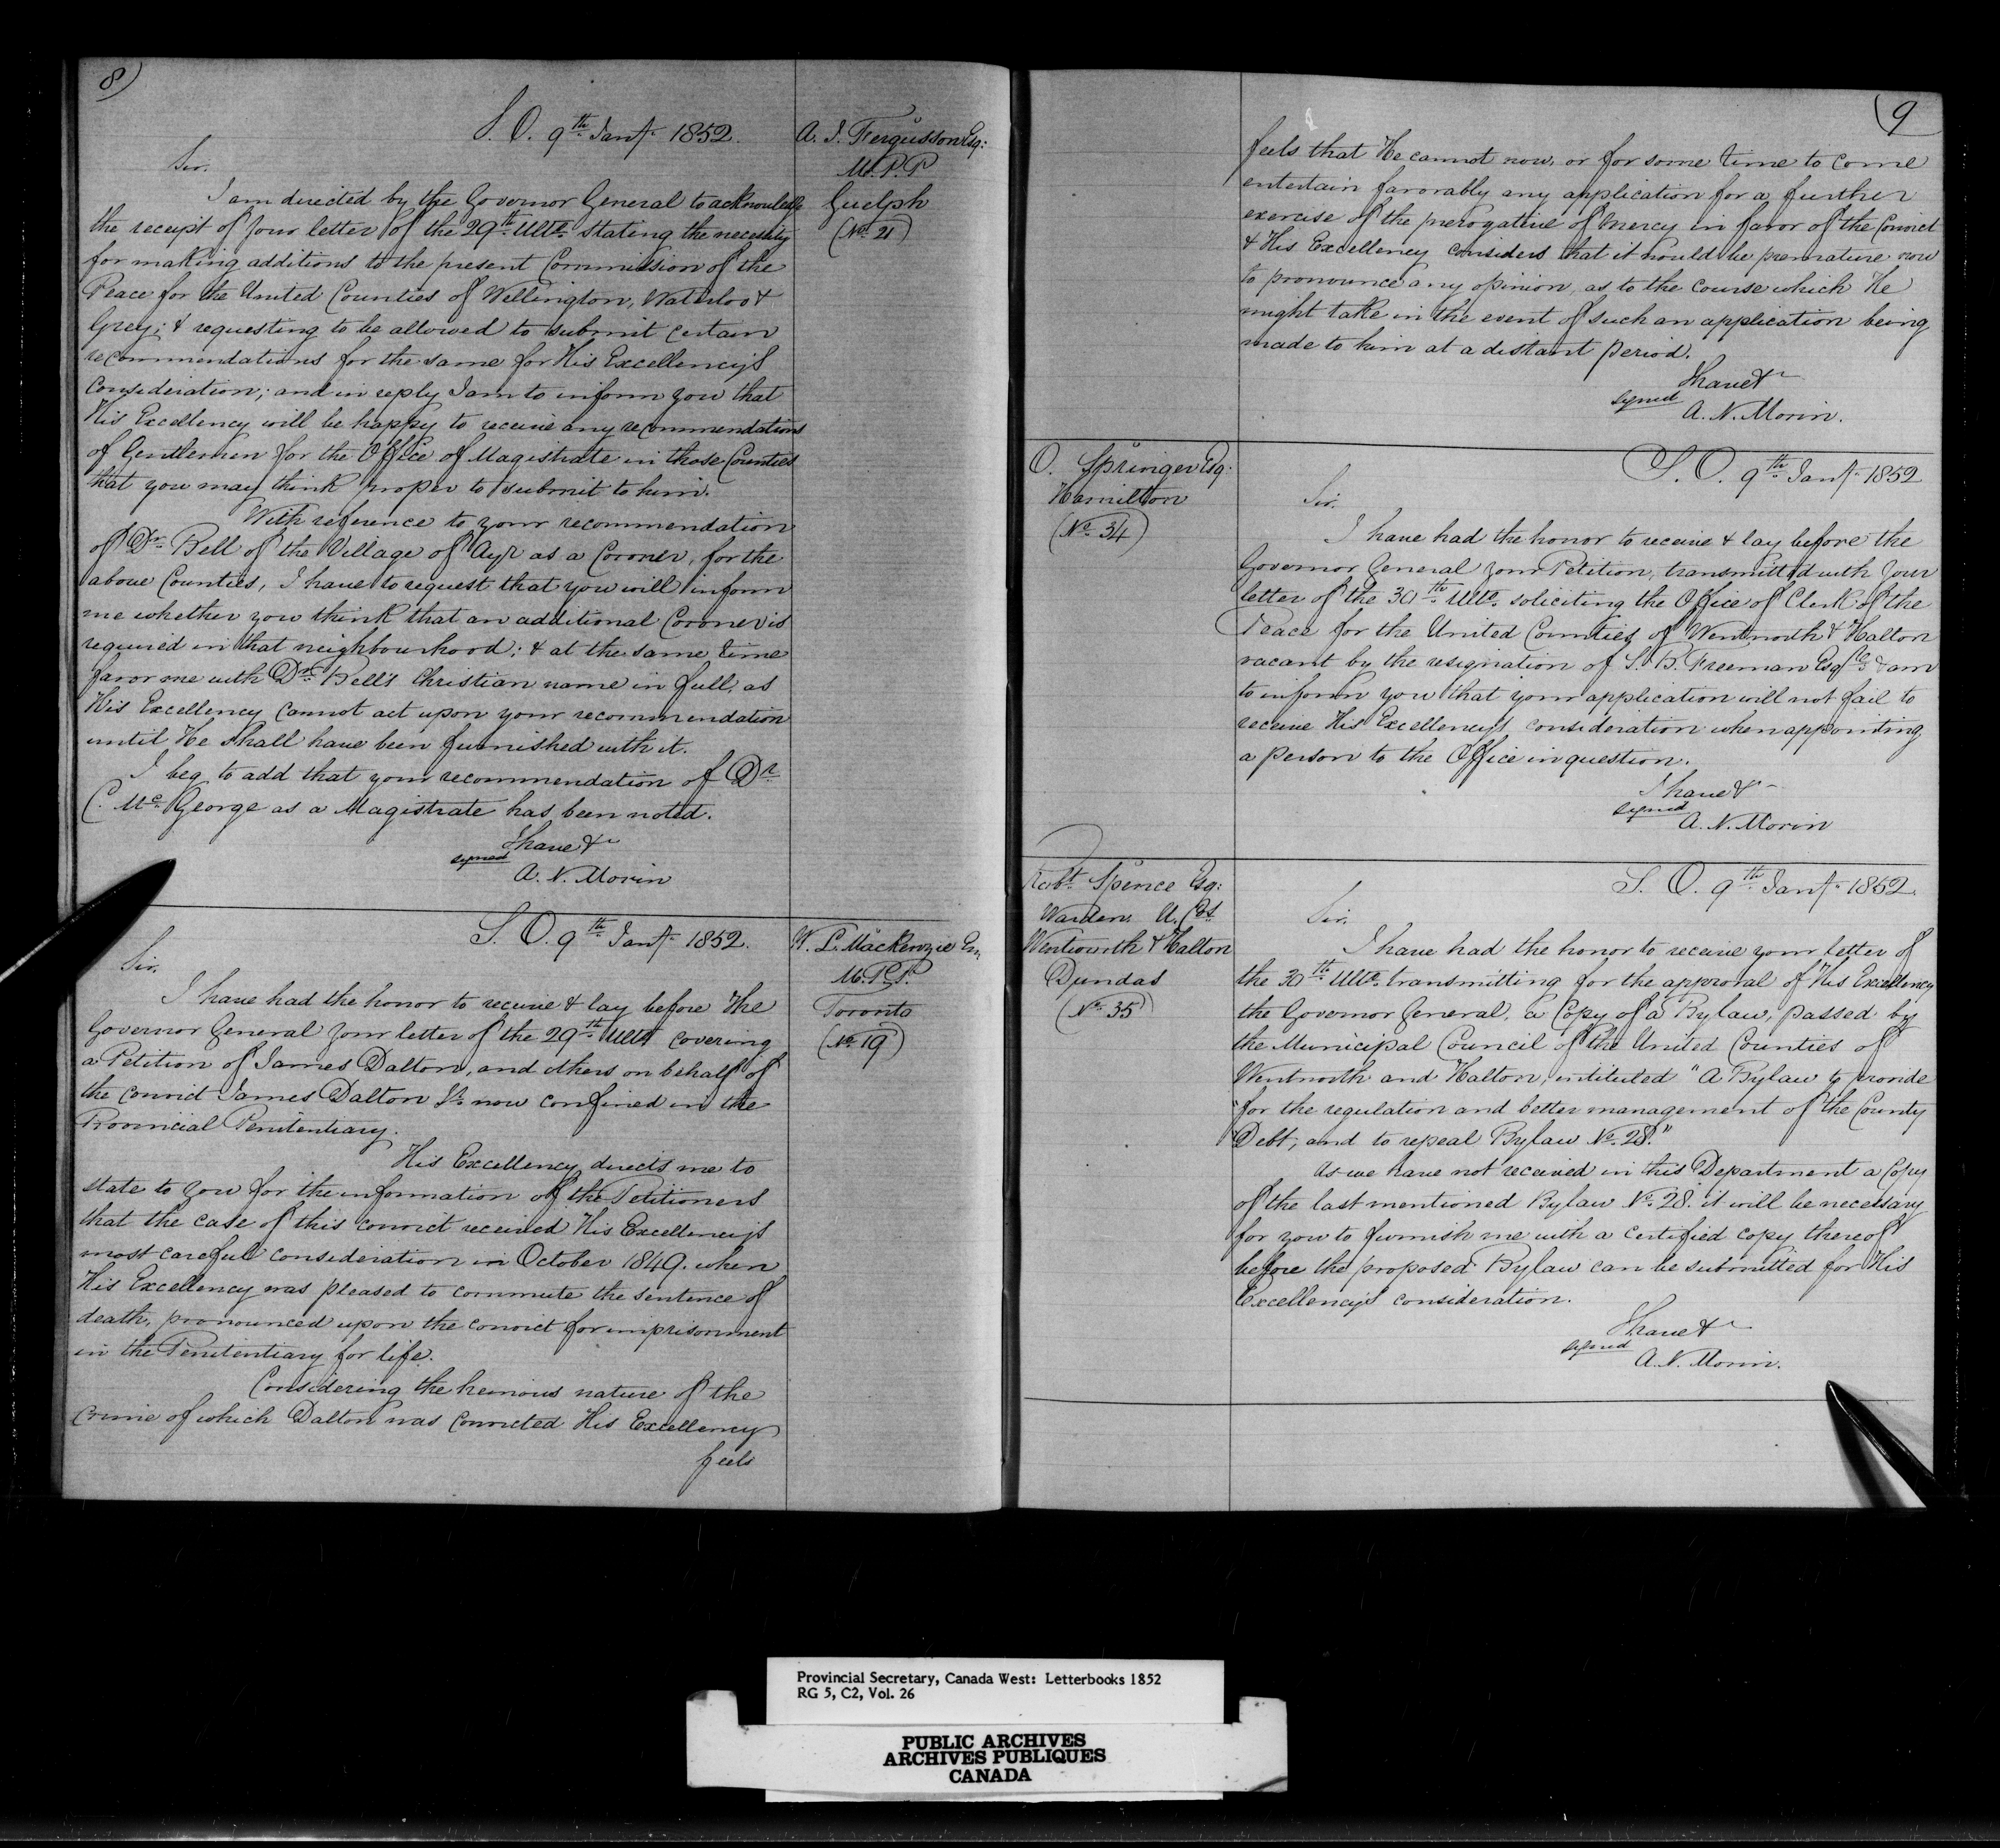 8)
S. O. 9th Jany 1852.
A. J. Fergusson Esq:
M.P.P
Guelph
(No. 21)
Sir.
I am directed by the Governor General to acknowledge
the receipt of your letter of the 29th Ulto. stating the necessity
for making additions to the present Commission of the
Peace for the United Counties of Wellington, Waterloo &
Grey; & requesting to be allowed to submit certain
recommendations for the same for His Excellency's
Consideration; and in reply I am to inform you that
His Excellency will be happy to receive any recommendations
of Gentlemen for the Office of Magistrate in those Counties
that you may think proper to submit to him.
With reference to your recommendation
of Dr. Bell of the Village of Ayr as a Coroner, for the
above Counties, I have to request that you will inform
me whether you think that an additional Coroner is
required in that neighbourhood; & at the same time
favor me with Dr. Bell's Christian name in full, as
His Excellency cannot act upon your recommendation
until He shall have been furnished with it.
I beg to add that your recommendation of Dr
C. Mc.George as a Magistrate has been noted.
I have &c
signed
A. N. Morin
S. O. 9th Jany 1852.
W. L. Mackenzie Esq.
M.P.P.
Toronto
(No. 19)
Sir,
I have had the honor to receive & lay before The
Governor General your letter of the 29th Ulto covering
a Petition of James Dalton, and others on behalf of
the convict James Dalton Jr. now confined in the
Provincial Penitentiary.
His Excellency directs me to
state to you for the information of the Petitioners
that the case of this convict received His Excellency's
most careful consideration in October 1849. when
His Excellency was pleased to commute the sentence of
death, pronounced upon the convict for imprisonment
in the Penitentiary for life.
Considering the heinous nature of the
crime of which Dalton was convicted His Excellency
feels
9
feels that He cannot now, or for some time to come
entertain favorably any application for a further
exercise of the prerogative of mercy in favor of the Convict
& His Excellency considers that it would be premature now
to pronounce any opinion, as to the course which He
might take in the event of such an application being
made to him at a distant period.
I have &c
signed
A. N. Morin.
O. Springer Esq:
Hamilton
(No. 34)
S. O. 9th Jany 1852
Sir,
I have had the honor to receive & lay before the
Governor General your Petition, transmitted with your
letter of the 30th Ulto. soliciting the Office of Clerk of the
Peace for the United Counties of Wentworth & Halton
vacant by the resignation of S. B. Freeman Esqre & am
to inform you that your application will not fail to
receive His Excellency's consideration when appointing
a person to the Office in question.
I have &c
signed
A. N. Morin
Robt. Spence Esq:
Warden U. Cos.
Wentworth & Halton
Dundas
(No. 35)
S. O. 9th Jany 1852.
Sir,
I have had the honor to receive your letter of
the 30th Ulto. transmitting for the approval of His Excellency
the Governor General, a Copy of a Bylaw, passed by
the Municipal Council of the United Counties of
Wentworth and Halton, intituled "A Bylaw to provide
"for the regulation and better management of the County
"Debt, and to repeal Bylaw No. 28."
As we have not received in this Department a Copy
of the last mentioned Bylaw No. 28. it will be necessary
for you to furnish me with a certified copy thereof
before the proposed Bylaw can be submitted for His
Excellency's consideration.
I have &c
signed
A. N. Morin.
Provincial Secretary, Canada West: Letterbooks 1852
RG 5, C2, Vol. 26
PUBLIC ARCHIVES
ARCHIVES PUBLIQUES
CANADA